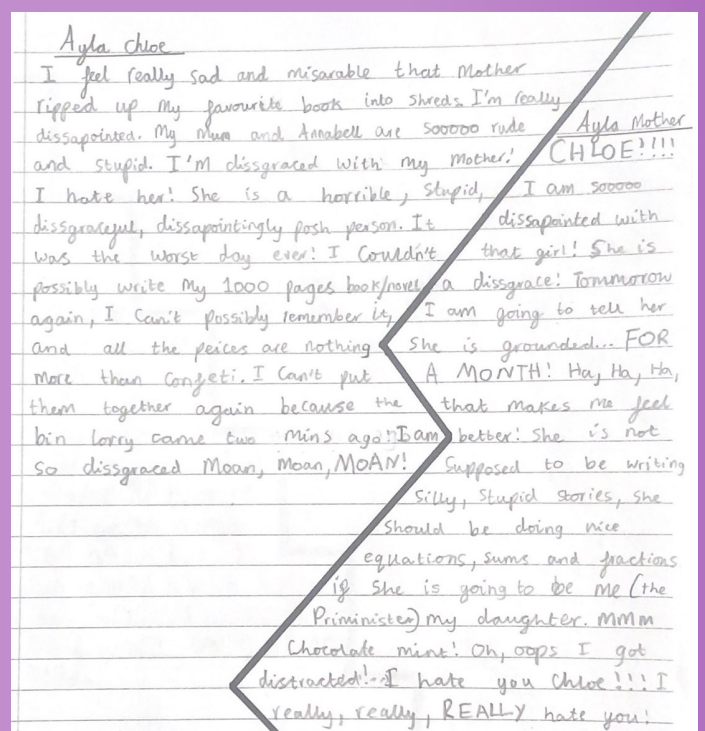 Ayla Chloe
I feel really sad and misarable that Mother
ripped up my favourite book into shreds. I'm really
dissapointed. My Mum and Annabell are sooooo rude
and stupid. I'M dissgraced with my Mother!
I hate her! She is a horrible, stupid,
dissgraceful, dissapointingly posh person. It
was the worst day ever! I Couldn't
possibly write my 1000 pages book/novel
again, I Can't possibly remember it,
and all the peices are nothing
more than Confeti. I Can't put
them together again because the
bin lorry came two mins ago! I am
so dissgraced Moan, Moan, MOAN!
Ayla Mother
CHLOE?!!!
I am sooooo
dissapointed with
that girl! She is
a dissgrace! Tommorow
I am going to tell her
She is grounded... FOR
A MONTH! Ha, Ha, Ha,
that makes me feel
better! She is not
Supposed to be writing
Silly, Stupid stories, she
should be doing nice
equations, sums and fractions
if She is going to be me (the
Priminister) my daughter. MMM
Chocolate mint! Oh, oops I got
distracted!... I hate you Chloe!!! I
really, really, REALLY hate you!